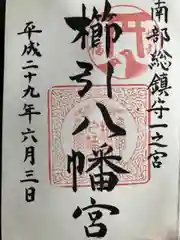 南部総鎮守一之宮
櫛引八幡宮
平成二十九年六月三日